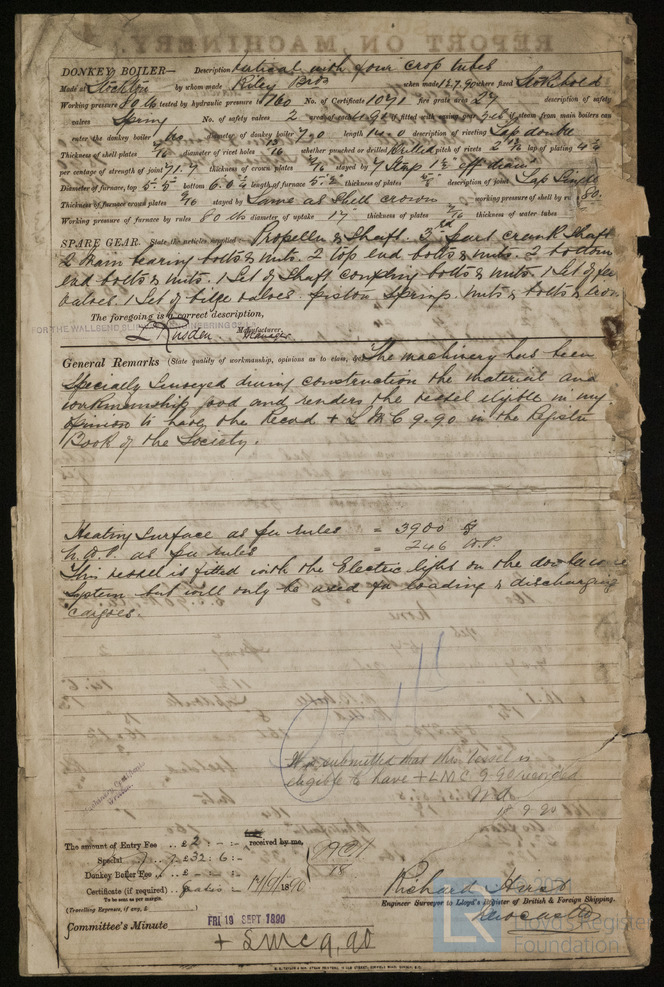 DONKEY BOILER— Description Vertical with four crop tubes
Made at Stockton by whom made Riley Bros when made 18.7.90 where fixed Stokehold
Working pressure 80 lb tested by hydraulic pressure 160 No. of Certificate 1071 fire grate area 27 description of safety
valves Spring No. of safety valves 2 area of each if fitted with easing gear yes if steam from main boilers can
enter the donkey boiler no diameter of donkey boiler 7-0 length description of riveting Lap double
Thickness of shell plates 7/16 diameter of rivet holes 13/16 whether punched or drilled drilled pitch of rivets lap of plating
per centage of strength of joint 71.7 thickness of crown plates stayed by 7 Stays
Diameter of furnace, top 5-5 bottom length of furnace thickness of plates description of joint Lap Single
Thickness of furnace crown plates 9/16 stayed by Same as shell crown working pressure of shell by rules 80
Working pressure of furnace by rules 80 lbs diameter of uptake 17 thickness of plates 7/16 thickness of water tubes
SPARE GEAR. State the articles supplied:— Propeller & Shaft. 3rd part crank Shaft
2 Main bearing bolts & nuts. 2 top end bolts & nuts. 2 bottom
end bolts & nuts. 1 Set of Shaft coupling bolts & nuts. 1 Set of feed
valves. 1 Set of bilge valves. piston Springs. nuts & bolts & iron
The foregoing is a correct description,
FOR THE WALLSEND SLIPWAY & ENGINEERING CO
Manufacturer.
Manager
General Remarks (State quality of workmanship, opinions as to class, &c. The machinery has been
Specially Surveyed during construction the material and
workmanship good and renders the vessel eligible in my
opinion to have the Record + LMC 9.90 in the Register
Book of the Society.
Heating Surface as per rules = 3900
N.H.P. as per rules = 246 H.P.
This vessel is fitted with the Electric light on the double wire
System but will only be used for loading & discharging
Cargoes.
It is submitted that this Vessel is
eligible to have + LMC 9.90 recorded
18.9.90
The amount of Entry Fee .. £2 : - : - received by me,
Special .. £32 : 6 : -
Donkey Boiler Fee .. £ - : - : -
Certificate (if required) .. gratis 17/9/1890
To be sent as per margin.
(Travelling Expenses, if any, £ )
Richard Hirst
Engineer Surveyor to Lloyd's Register of British & Foreign Shipping.
Newcastle
Committee's Minute
FRI 19 SEPT 1890
+ LMC 9.90
Lloyd's Register
Foundation
REPORT ON MACHINERY.